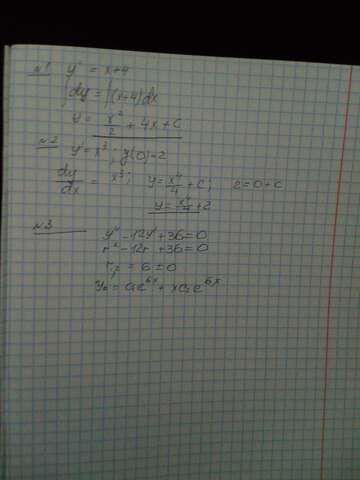 №1 y' = x+4
∫dy = ∫(x+4)dx
y = x²/2 + 4x + C
№2
y' = x³ - y(0)=2
dy/dx = x³; y = x⁴/4 + C; 2=0+C
y = x⁴/4 + 2
№3
y'' - 12y' + 36 = 0
r² - 12r + 36 = 0
r₁,₂ = 6 = 0